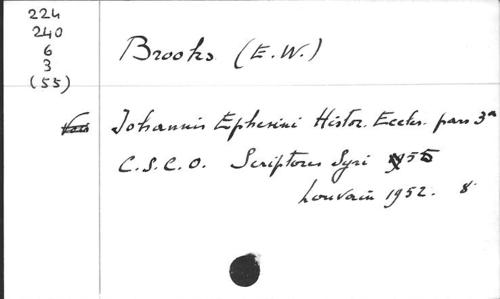 224
240
6
3
(55)
Brooks (E.W.)
Johannis Ephesini Histor. Eccles. pars 3ª
C.S.C.O. Scriptores Syri 55
Louvain 1952. 8°